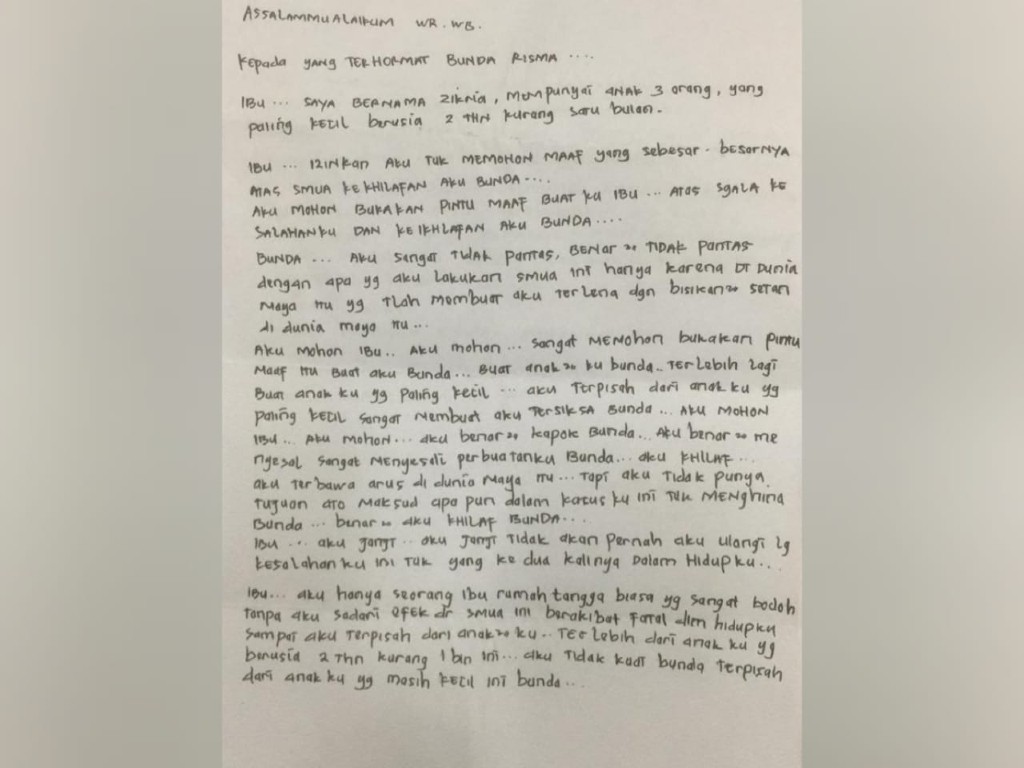 ASSALAMMUALAIKUM WR. WB.
Kepada YANG TERHORMAT BUNDA RISMA ....
IBU ... SAYA BERNAMA ZIKRIA, mempunyai ANAK 3 orang, yang
paling KECIL berusia 2 THN kurang satu bulan.
IBU ... IZINKAN AKU TUK MEMOHON MAAF yang sebesar - besarNYA
ATAS SMUA KEKHILAFAN AKU BUNDA....
AKU MOHON BUKAKAN PINTU MAAF BUAT KU IBU ... ATAS SGALA KE
SALAHANKU DAN KEIKHLAFAN AKU BUNDA....
BUNDA ... AKU sangat TIDAK PANTAS, BENAR 20 TIDAK PANTAS
dengan apa yg aku lakukan smua ini hanya karena DI DUNIA
Maya itu yg TLah membuat aku Terlena dgn bisikan 20 setan
di dunia maya itu ...
AKU MOHON IBU.. AKU mohon ... sangat MEMOhon bukakan pintu
Maaf itu Buat aku Bunda ... Buat anak 20 ku bunda.. TerLebih Lagi
Buat anak ku yg Paling KeciL ... aku Terpisah dari anak ku yg
paling KECIL sangat Membuat aku Tersiksa Bunda ... AKU MOHON
IBU... AKU Mohon ... aku benar 20 kapok Bunda... Aku benar 20 me
ngesal sangat Menyesali perbuatanku Bunda... aku KHILAF ...
aku Terbawa arus di dunia Maya itu ... Tapi aku Tidak punya
Tujuan ato Maksud apa pun dalam kasus ku ini Tuk MENGhina
Bunda ... benar 20 aku KHILAF BUNDA...
IBU ... aku janji .. aku janji Tidak akan Pernah aku ulangi Lg
kesalahan ku ini Tuk yang ke dua kalinya DaLam Hidupku..
IBU... aku hanya seorang Ibu rumah tangga biasa yg sangat bodoh
Tanpa aku sadari efek dr smua ini berakibat Fatal dlm hidupku
sampai aku Terpisah dari anak 20 ku.. TerLebih dari anak ku yg
berusia 2 Thn kurang 1 bln ini ... aku Tidak kuat bunda Terpisah
dari anak ku yg masih KECIL ini bunda...